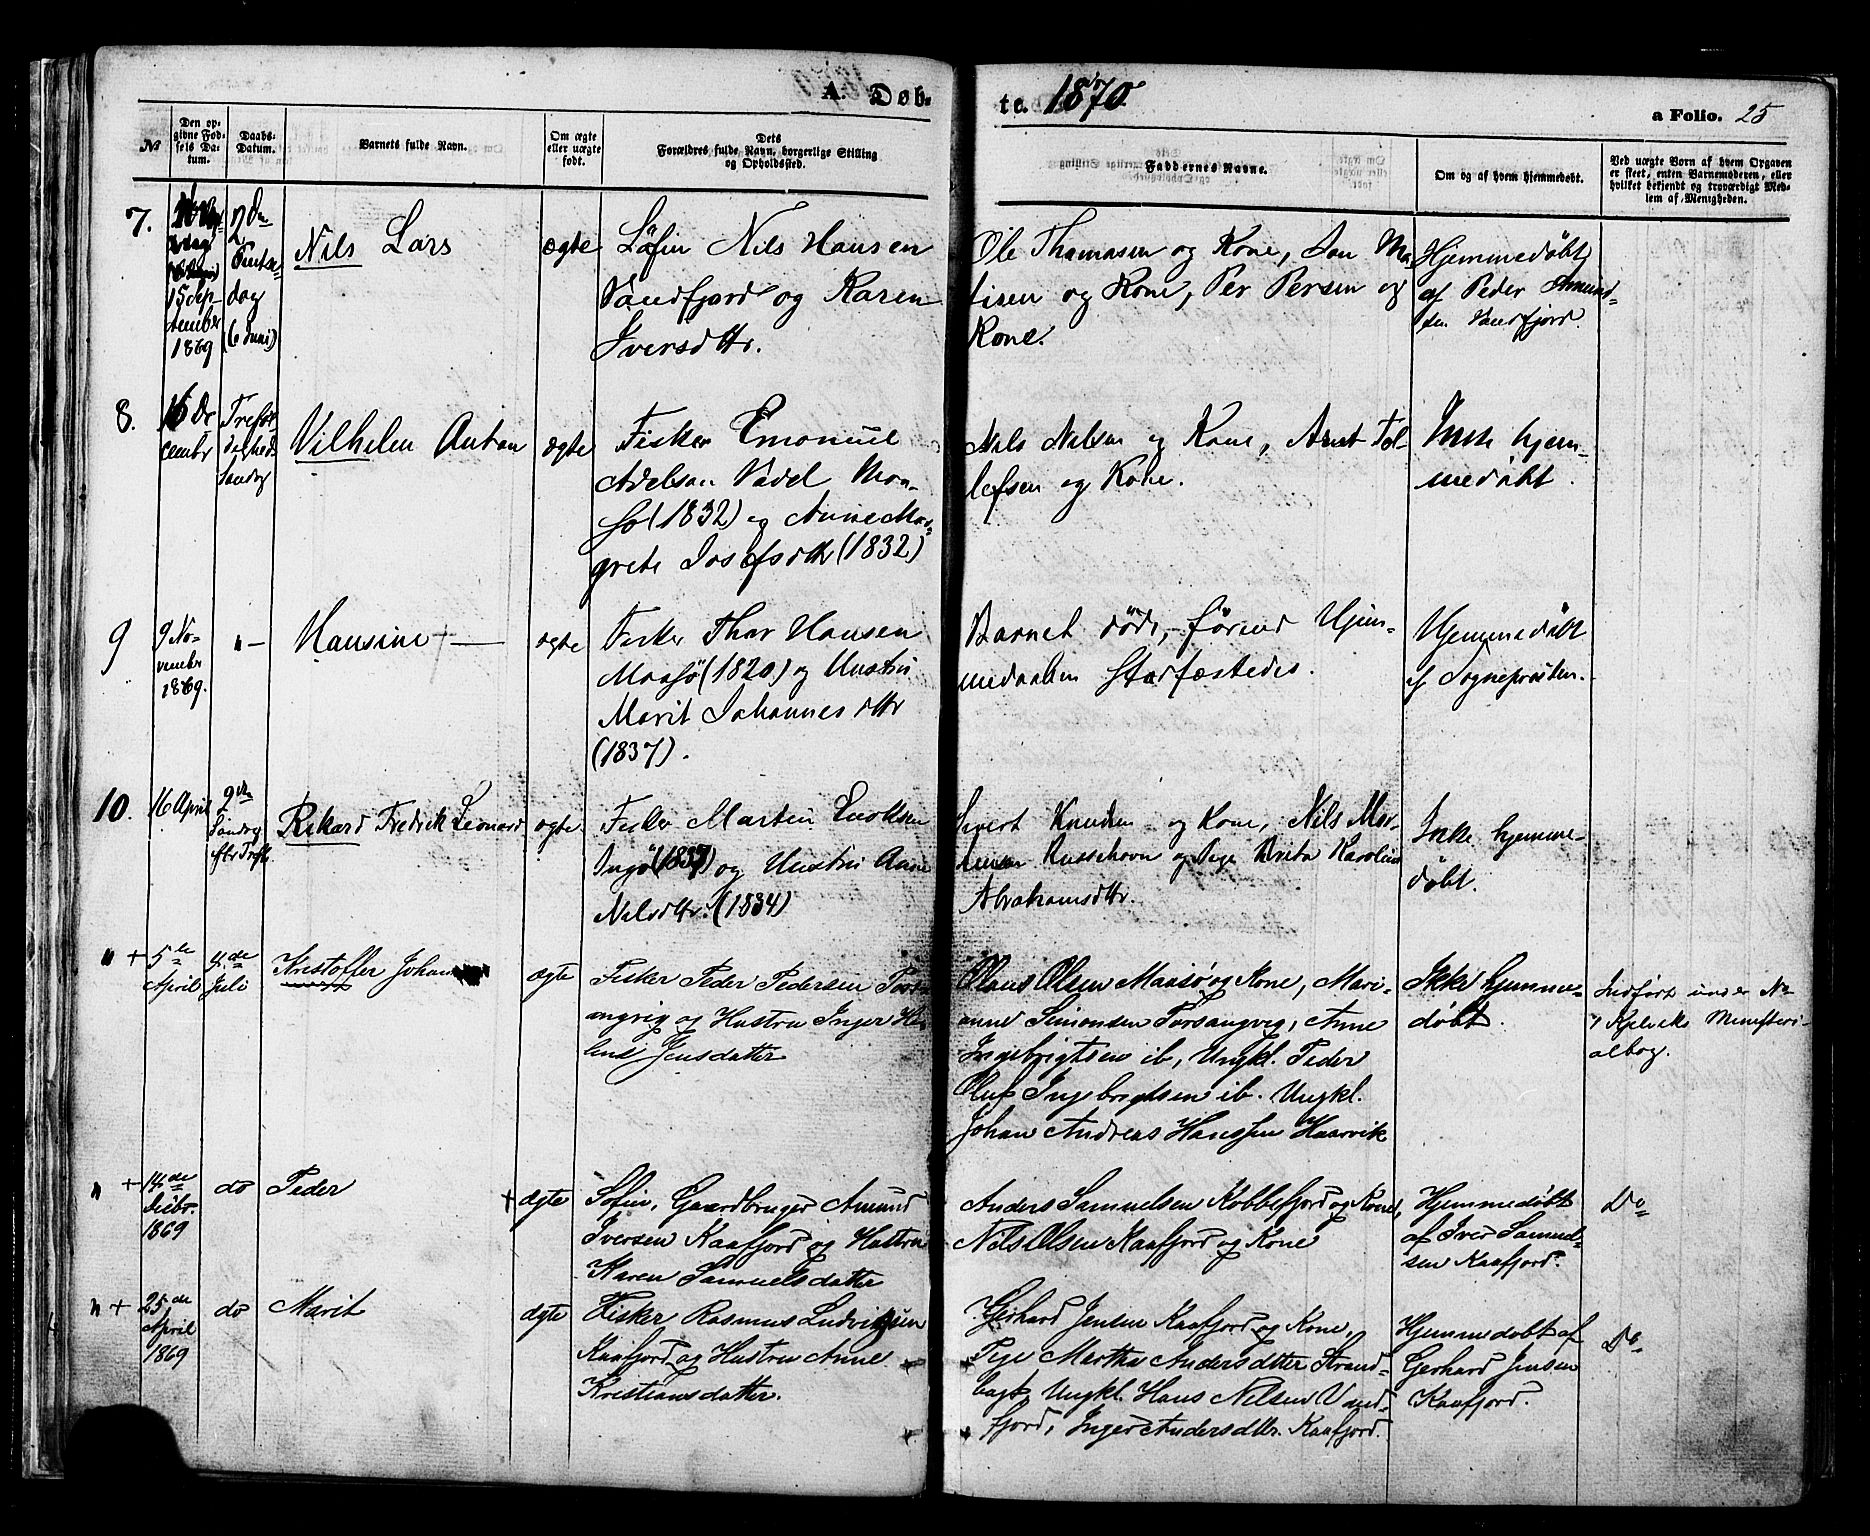 A. Døb-
te. 1870
a Folio. 25
№
Den op-
givne Fød-
sels Da-
tum.
Daabs-
Datum.
Barnets fulde Navn.
Om ægte
eller uægte
født.
Dets
Forældres fulde Navn, borgerlige Stilling
og Opholdssted.
Faddernes Navne.
Om og af hvem hjemmedøbt.
Ved uægte Børn af hvem Opgaven
er skeet, enten Barnemoderen, eller
hvilket bekjendt og troværdigt Med-
lem af Menigheden.
7.
15 Sep-
tember
1869
2 Pintse-
dag
(6 Juni)
Nils Lars
ægte
Søfin Nils Hansen
Vandfjord og Karen
Iversdttr.
Ole Thomasen og Kone, Jon Ma-
tisen og Kone, Per Persen og
Kone.
Hjemmedøbt
af Peder Amund-
sen Vandfjord.
8.
16 De
cembr
Trefol-
digheds
Søndag
Vilhelm Anton
ægte
Fisker Emanuel
Adelsen Vadel Maa-
sø (1832) og Anne Mar-
grete Josefsdttr (1832)
Nils Nilsen og Kone, Arnt Tol-
lefsen og Kone.
Ikke hjem-
medøbt.
9
9 No-
vember
1869.
" —
Hansine + —
ægte
Fisker Thor Hansen
Maasø (1820) og Hustru
Marit Johannesdttr
(1837).
Barnet døde, førend Hjem-
medaaben stadfæstedes.
Hjemmedøbt
af Sogneprästen.
10.
16 April
2den
Søndag
eftr Trefh.
Rikard Fredrik Leonard
ægte
Fisker Martin Enoksen
Ingø (1837) og Hustru Anne
Nilsdttr. (1834)
Sivert Knudsen og Kone, Nils Mor-
tensen Russehavn og Pige Brita Karolina
Abrahamsdttr.
Ikke hjemme-
døbt.
" +
5te
April
4de
Juli
Kristoffer Johan
ægte
Fisker Peder Pedersen Tors-
angvig og Hustru Inger He-
lene Jensdatter
Olaus Olsen Maasø og Kone, Mari-
anne Simonsen Torsangvig, Anne
Ingebrigtsen ib, Ungkl. Peder
Oluf Ingebrigtsen ib. Ungkl.
Johan Andreas Hanssen Haarvik
Ikke hjemme-
døbt.
Indført under No
7 Kjelviks Ministeri-
albog.
" +
14de
Debr.
1869
do
Peder
+ ægte
Søfin, Gaardbruger Amund
Iversen Kaafjord og Hustru
Karen Samuelsdatter
Anders Samuelsen Kobbefjord og Kone,
Nils Olsen Kaafjord og Kone
Hjemmedøbt
af Iver Samuel-
sen Kaafjord.
Do
" +
25de
April
1869
do
Marit
ægte
Fisker Rasmus Ludvigsen
Kaafjord og Hustru Anne
Kristiansdatter.
Gerhard Jensen Kaafjord og Kone,
Pige Martha Andersdtter Strand-
bugt, Ungkl. Hans Nilsen Vand-
fjord, Inger Andersdttr. Kaafjord.
Hjemmedøbt af
Gerhard Jensen
Kaafjord.
Do